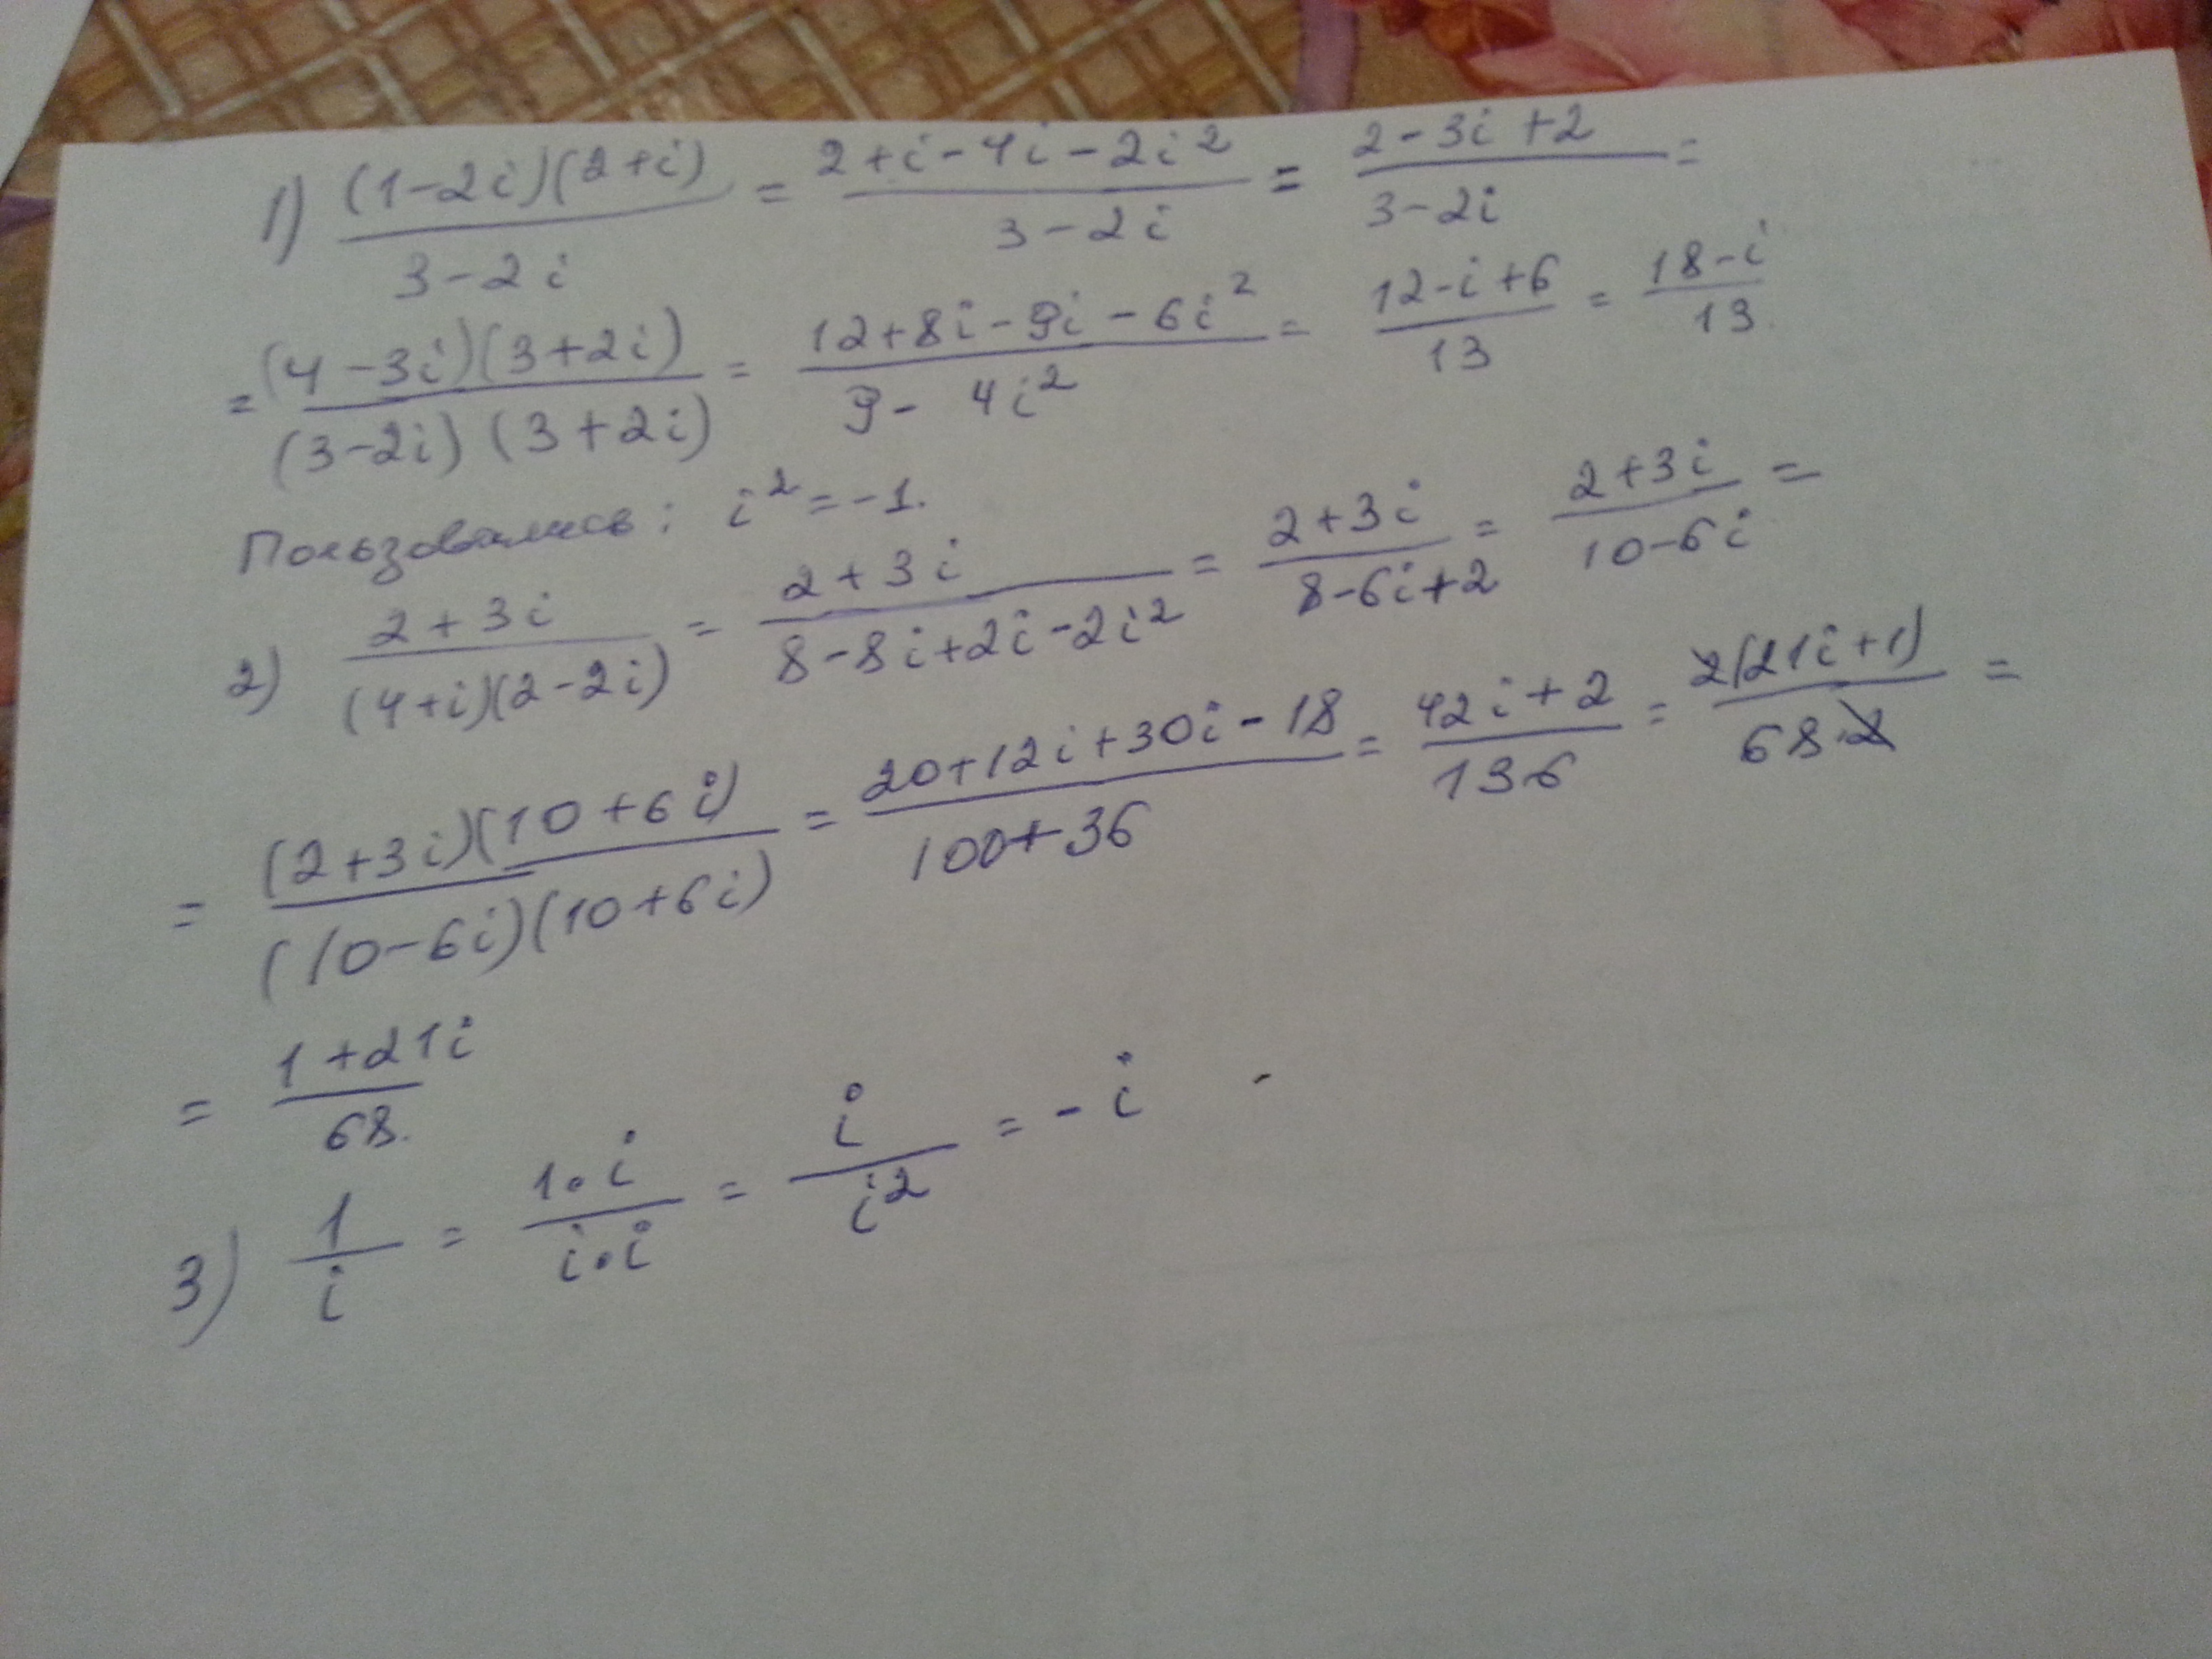 1) (1-2i)(2+i)/3-2i = 2+i-4i-2i²/3-2i = 2-3i+2/3-2i =
= (4-3i)(3+2i)/(3-2i)(3+2i) = 12+8i-9i-6i²/9-4i² = 12-i+6/13 = 18-i/13.
Пользовались: i²=-1.
2) 2+3i/(4+i)(2-2i) = 2+3i/8-8i+2i-2i² = 2+3i/8-6i+2 = 2+3i/10-6i =
= (2+3i)(10+6i)/(10-6i)(10+6i) = 20+12i+30i-18/100+36 = 42i+2/136 = 2(21i+1)/68·2 =
= 1+21i/68.
3) 1/i = 1·i/i·i = i/i² = -i